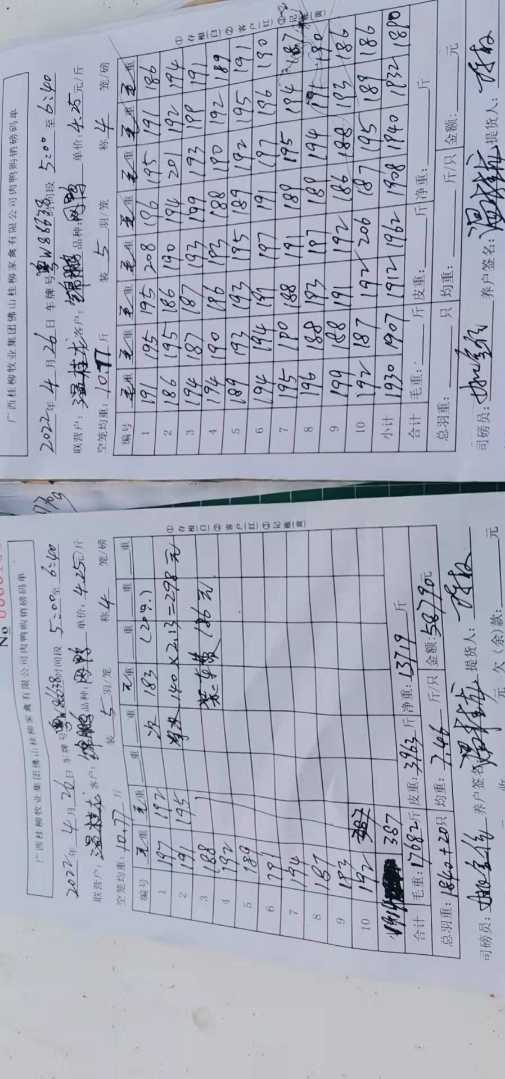 广西桂柳牧业集团佛山桂柳家禽有限公司肉鸭购销磅码单
2022年4月26日 车牌号 粤W86638 时间段 5:00 至 6:40
联营户: 温桂龙 客户: 品种: 肉鸭 单价: 4.25元/斤
空笼均重: 10.77斤 装 5 羽/笼 称 4 笼/磅
编号 毛重 毛重 毛重 毛重 毛重 毛重 毛重
1 191 195 195 208 196 195 191 186
2 186 195 186 190 194 201 192 194
3 194 187 187 193 199 193 199 191
4 194 190 186 193 188 190 192 189
5 189 193 193 195 189 192 195 191
6 194 194 191 197 191 197 196 190
7 195 180 188 191 189 195 194 187
8 196 188 193 187 189 194 191 190
9 199 188 191 192 186 188 193 186
10 192 187 192 206 187 195 189 186
小计 1930 1907 1912 1962 1908 1940 1932 1890
合计 毛重: 斤 皮重: 斤 净重: 斤
总羽重: 只 均重: 斤/只 金额: 元
司磅员: 养户签名: 提货人:
①存根(白) ②客户(红) ③记账(黄)
No
广西桂柳牧业集团佛山桂柳家禽有限公司肉鸭购销磅码单
2022年4月26日 车牌号 粤W86638 时间段 5:00 至 6:40
联营户: 温桂龙 客户: 品种: 肉鸭 单价: 4.25元/斤
空笼均重: 10.77斤 装 5 羽/笼 称 4 笼/磅
编号 毛重 毛重 重 毛重 重 重 重
1 197 192 次 183 (20只)
2 191 195 140×2.13=298元
3 188 186元
4 192
5 189
6 191
7 194
8 187
9 183
10 192
387
合计 毛重: 17682斤 皮重: 3963斤 净重: 13719斤
总羽重: 1840+20只 均重: 7.46斤/只 金额: 58790元
司磅员: 养户签名: 提货人:
元 欠(余)款: 元
①存根(白) ②客户(红) ③记账(黄)